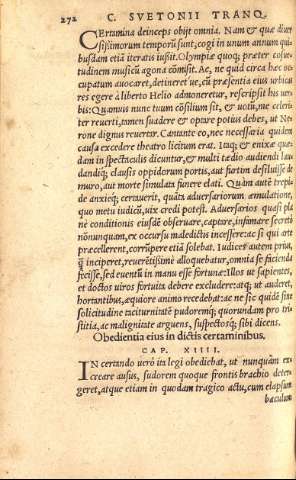 272 C. SVETONII TRANQ.
CErtamina deinceps obijt omnia. Nam & quæ diuer
sissimorum temporũ sunt, cogi in unum annum qui-
busdam etiã iteratis iußit. Olympiæ quoq; præter consue
tudinem musicũ agona cõmisit. Ac, ne quid circa hæc oc-
cupatum auocaret, detineret ue, cũ præsentia eius urbicas
res egere à liberto Helio admoneretur, rescripsit his uer-
bis: Quamuis nunc tuum cõsilium sit, & uotũ, me celeri-
ter reuerti, tamen suadere & optare potius debes, ut Ne-
rone dignus reuertar. Cantante eo, nec necessaria quidem
causa excedere theatro licitum erat. Itaq; & enixæ quæ-
dam in spectaculis dicuntur, & multi tædio audiendi lau-
dandiq;, clausis oppidorum portis, aut furtim desiluisse de
muro, aut morte simulata funere elati. Quàm autẽ trepi-
de anxieq; certauerit, quãta aduersariorum æmulatione,
quo metu iudicũ, uix credi potest. Aduersarios quasi pla
nè conditionis eiusdẽ obseruare, captare, infamare secretò
nõnunquam, ex occursu maledictis incessere: ac si qui arte
præcellerent, corrũpere etiã solebat. Iudices autem prius,
q̃ inciperet, reuerẽtißimè alloquebatur, omnia se facienda
fecisse, sed euentũ in manu esse fortunæ: Illos ut sapientes,
et doctos uiros fortuita debere excludere: atq; ut auderet,
hortantibus, æquiore animo recedebat: ac ne sic quidẽ sine
solicitudine taciturnitatẽ pudoremq; quorundam pro tri
stitia, ac malignitate arguens, suspectosq; sibi dicens.
Obedientia eius in dictis certaminibus.
CAP. XIIII.
IN certando uerò ita legi obediebat, ut nunquàm ex-
creare ausus, sudorem quoque frontis brachio deter-
geret, atque etiam in quodam tragico actu, cum elapsum
baculum